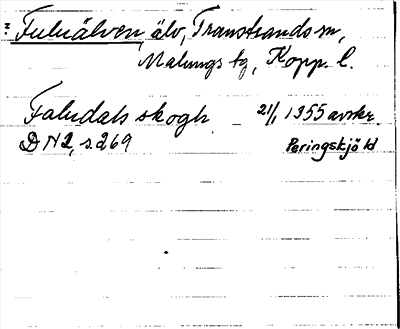 : Fuluälven, älv, Transtrands sn,
Malungs tg, Kopp. l.
Faludals skogh – 21/1 1355 avskr.
D N 2, s. 269 Peringskjöld